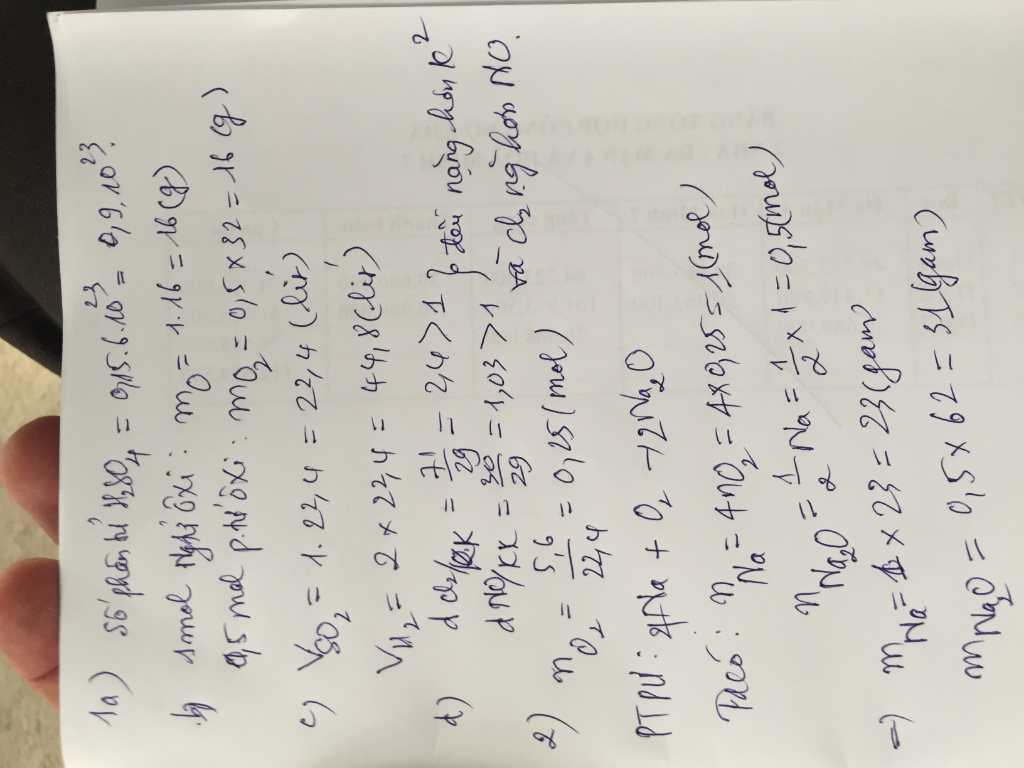 1a) Số phân tử H2SO4 = 0,15.6.10^23 = 0,9.10^23.
b) 1mol Ngtử ôxi : mO = 1.16 = 16(g)
0,5 mol p.tử ôxi : mO2 = 0,5 x 32 = 16 (g)
c) VSO2 = 1.22,4 = 22,4 (lít)
VH2 = 2 x 22,4 = 44,8 (lít)
d) d Cl2/KK = 71/29 = 2,4 > 1 } đều nặng hơn k^2
d NO/KK = 30/29 = 1,03 > 1 và Cl2 nặng hơn NO.
2) nO2 = 5,6/22,4 = 0,25 (mol)
PTPƯ: 4Na + O2 → 2Na2O
Ta có : nNa = 4nO2 = 4x0,25 = 1(mol)
nNa2O = 1/2 Na = 1/2 x 1 = 0,5(mol)
=> mNa = 1 x 23 = 23(gam)
mNa2O = 0,5 x 62 = 31(gam)